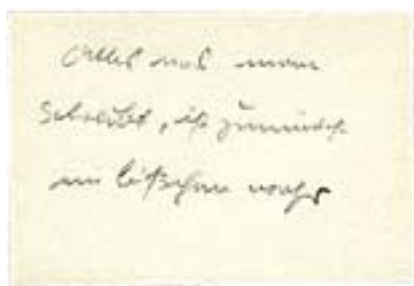 Alles was man
schreibt, ist zumindest
ein bißchen wahr